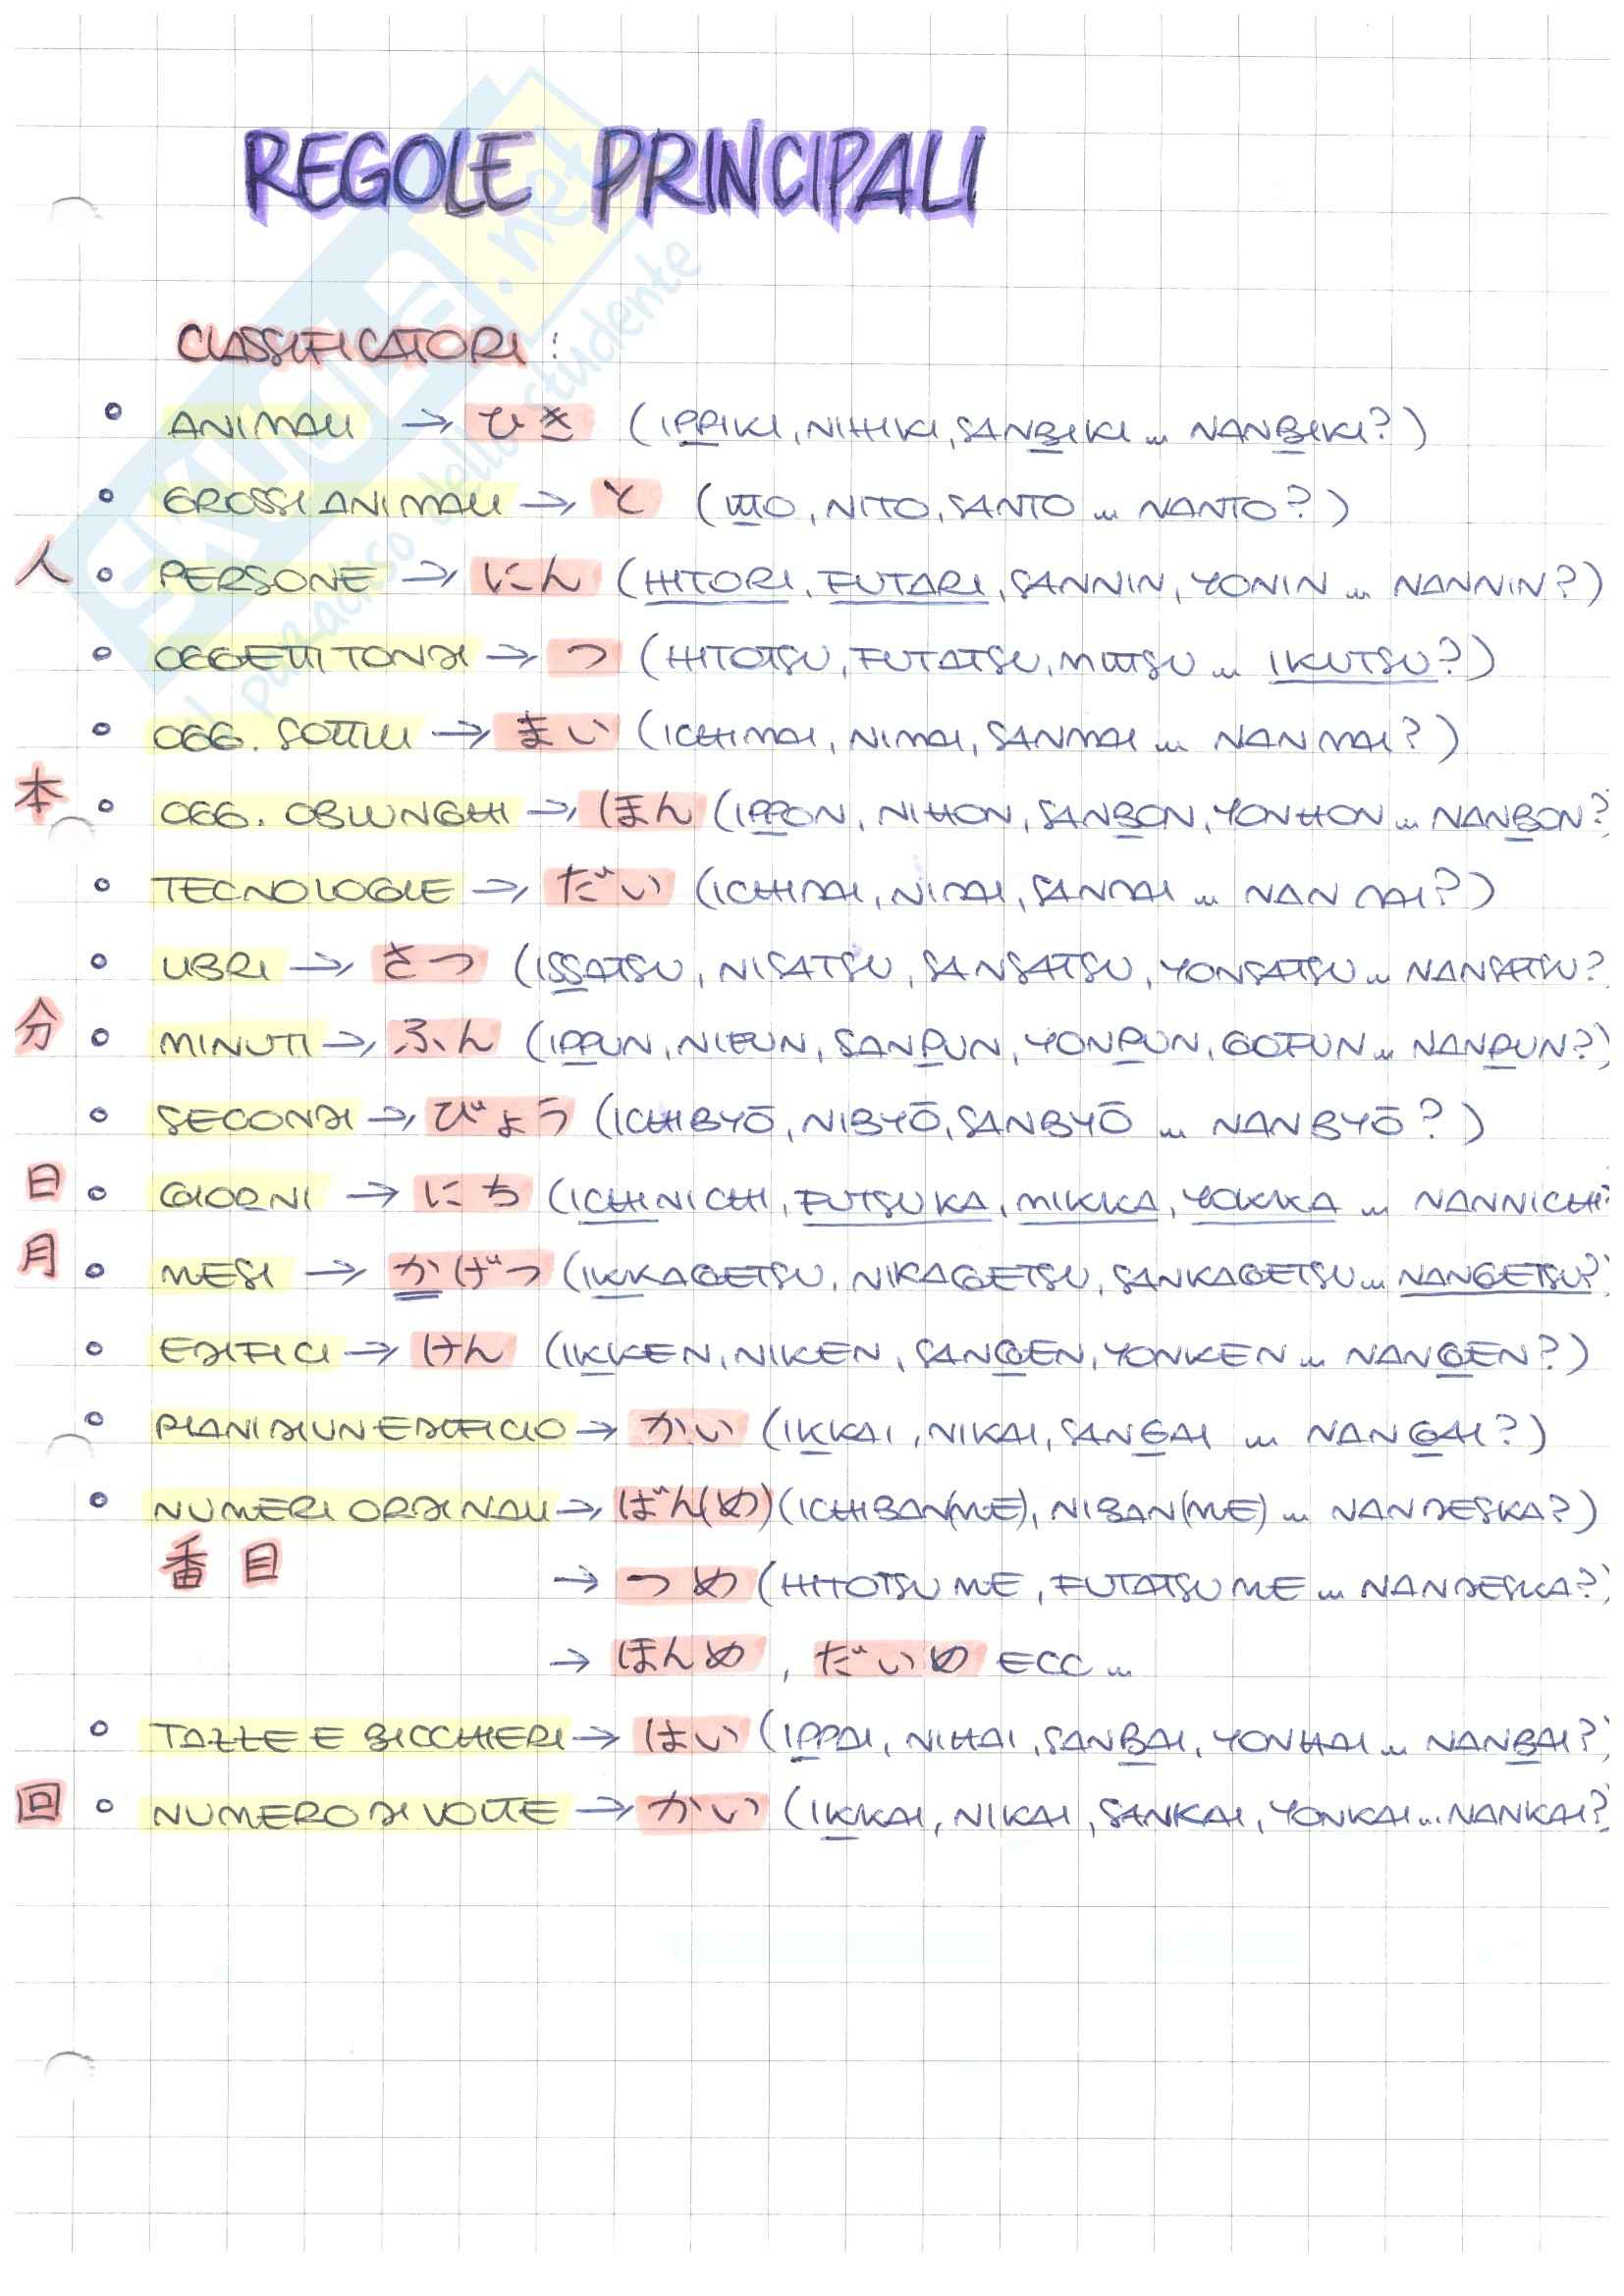 REGOLE PRINCIPALI
CLASSIFICATORI:
ANIMALI → ひき (IPPIKI, NIHIKI, SANBIKI ... NANBIKI?)
GROSSI ANIMALI → と (ITTO, NITO, SANTO ... NANTO?)
人 PERSONE → にん (HITORI, FUTARI, SANNIN, YONIN ... NANNIN?)
OGGETTI TONDI → つ (HITOTSU, FUTATSU, MITTSU ... IKUTSU?)
OGG. SOTTILI → まい (ICHIMAI, NIMAI, SANMAI ... NANMAI?)
本 OGG. OBLUNGHI → ほん (IPPON, NIHON, SANBON, YONHON ... NANBON?
TECNOLOGIE → だい (ICHIDAI, NIDAI, SANDAI ... NANDAI?)
LIBRI → さつ (ISSATSU, NISATSU, SANSATSU, YONSATSU ... NANSATSU?
分 MINUTI → ふん (IPPUN, NIFUN, SANPUN, YONPUN, GOFUN ... NANPUN?)
SECONDI → びょう (ICHIBYŌ, NIBYŌ, SANBYŌ ... NANBYŌ?)
日 GIORNI → にち (ICHINICHI, FUTSUKA, MIKKA, YOKKA ... NANNICHI?
月 MESI → かげつ (IKKAGETSU, NIKAGETSU, SANKAGETSU ... NANGETSU?)
EDIFICI → けん (IKKEN, NIKEN, SANGEN, YONKEN ... NANGEN?)
PIANI DI UN EDIFICIO → かい (IKKAI, NIKAI, SANGAI ... NANGAI?)
NUMERI ORDINALI → ばん(め) (ICHIBAN(ME), NIBAN(ME) ... NANDESKA?)
番目 → つめ (HITOTSUME, FUTATSUME ... NANDESKA?)
→ ほんめ, だいめ ECC ...
TAZZE E BICCHIERI → はい (IPPAI, NIHAI, SANBAI, YONHAI ... NANBAI?)
回 NUMERO DI VOLTE → かい (IKKAI, NIKAI, SANKAI, YONKAI ... NANKAI?
SKUOLA.net
il paradiso dello studente